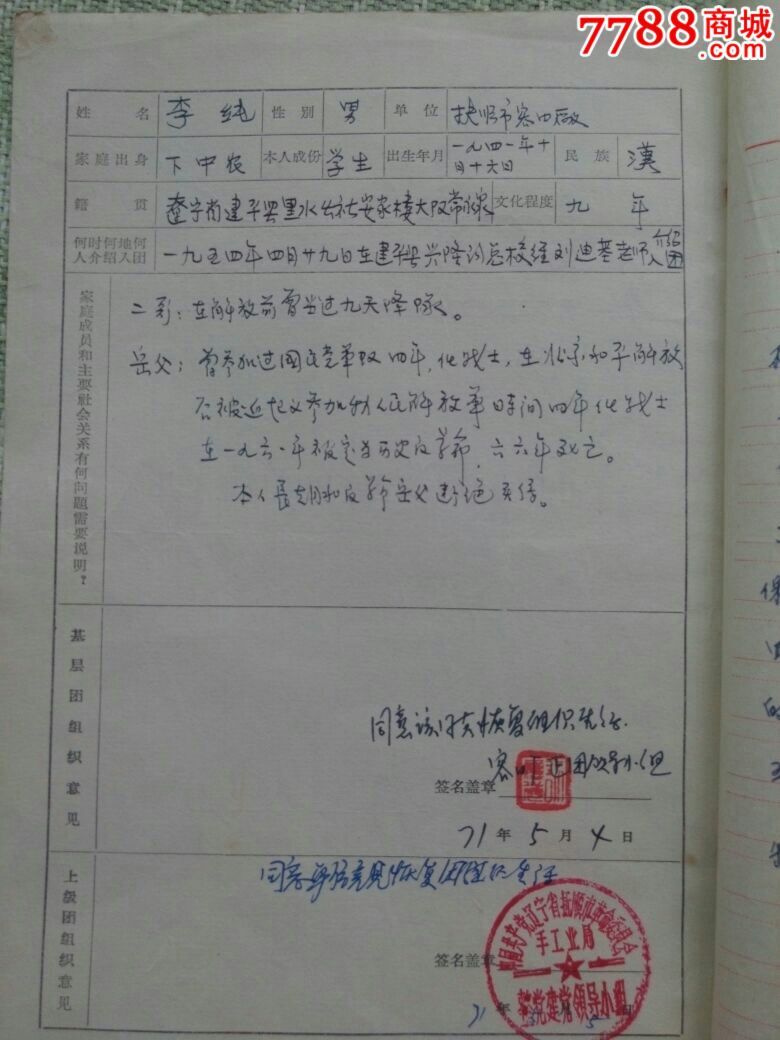 7788商城
.com
姓名 李纯 性别 男 单位 抚顺市客口厂
家庭出身 下中农 本人成份 学生 出生年月 一九四一年十月十六日 民族 漢
籍贯 遼宁省建平县黑水公社安家楼大队 文化程度 九年
何时何地何人介绍入团 一九五四年四月廿九日在建平县兴隆沟总校经刘迪基老师介绍入团
家庭成员和主要社会关系有何问题需要说明?
二哥:在解放前曾当过九天降队。
岳父:曾参加过国民党军队四年,化战士,在北京和平解放
后被迫起义参加的人民解放军时间四年化战士
在一九六一年被定为历史反革命,六六年死亡。
本人長期和反革命岳父断绝关係。
基层团组织意见
同意该同志恢复组织生活。
正团领导小组
签名盖章
71年5月4日
上级团组织意见
同意 意见恢复团组织生活
签名盖章
中国共产党辽宁省抚顺市革命委员会
手工业局
整党建党领导小组
71年 月5日